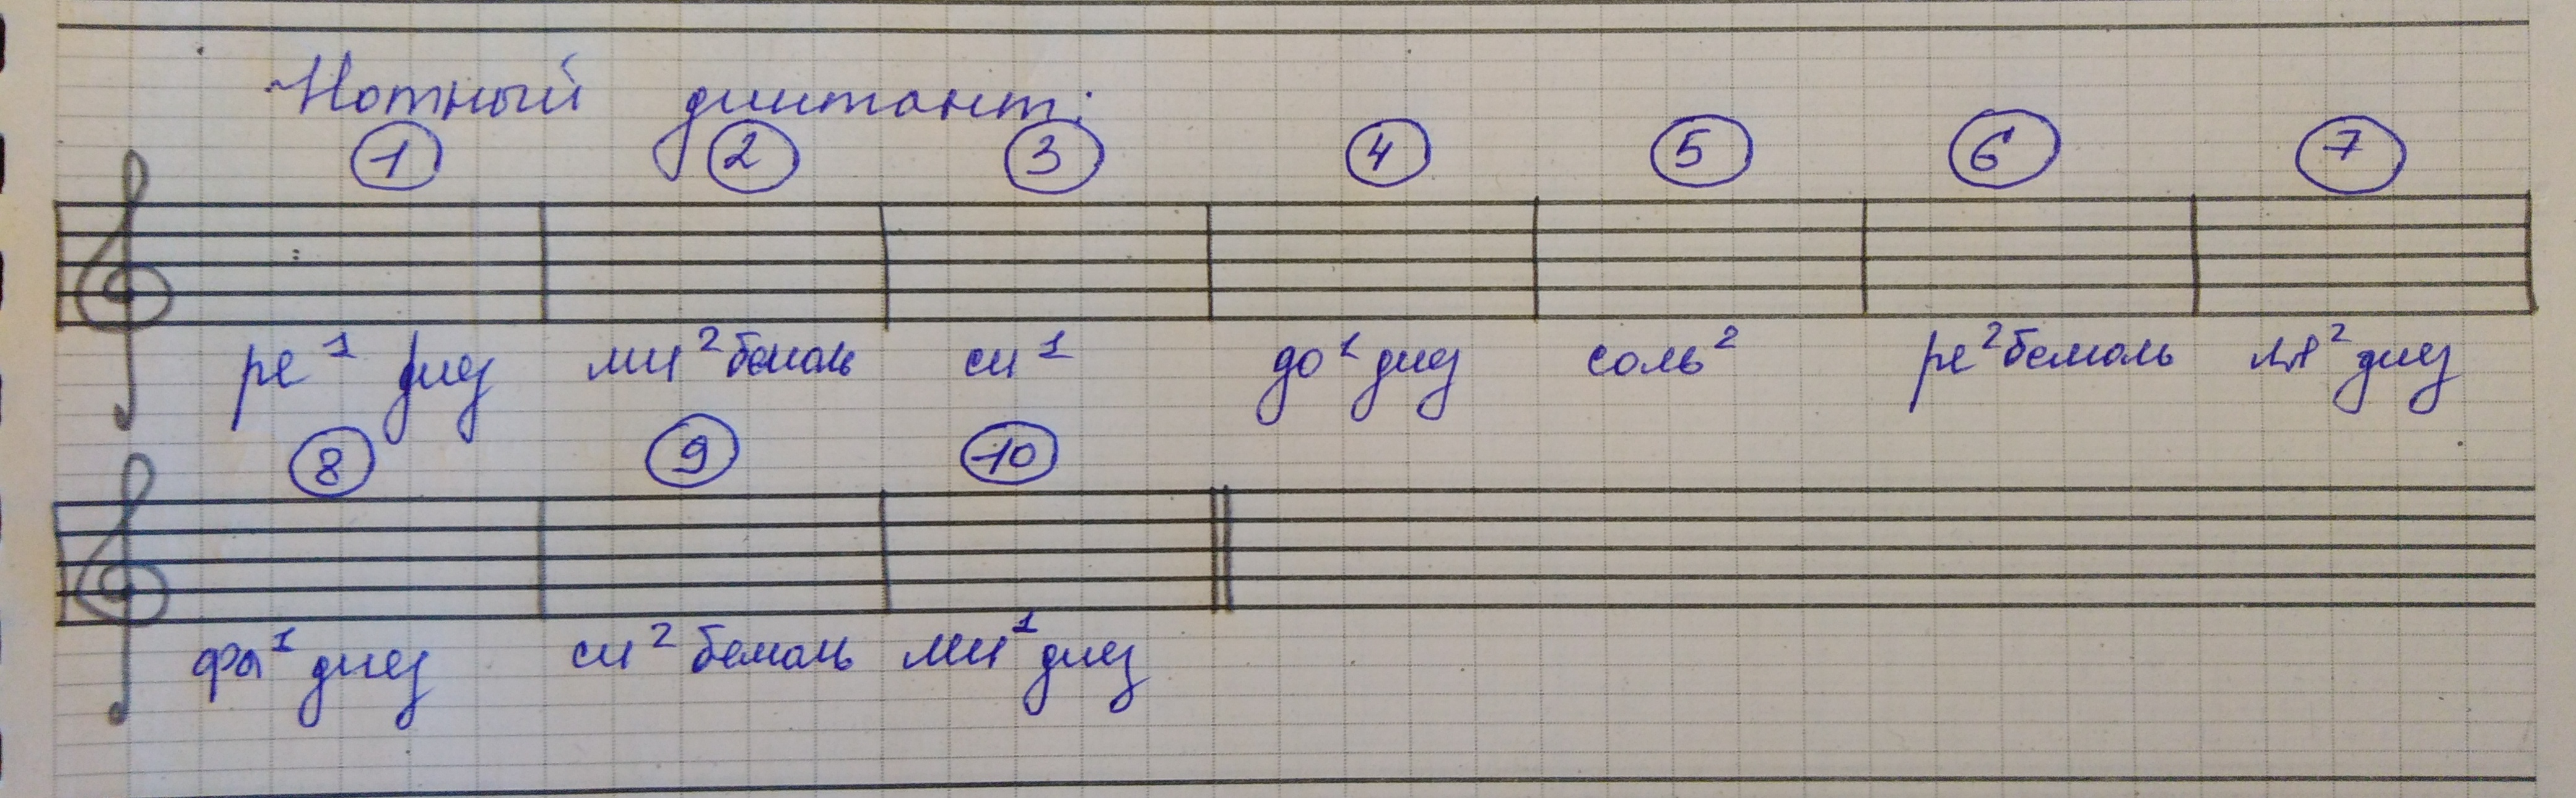 Нотный диктант:
1 2 3 4 5 6 7
ре¹ диез ми² бемоль си¹ до¹ диез соль² ре² бемоль ля² диез
8 9 10
фа¹ диез си² бемоль ми¹ диез